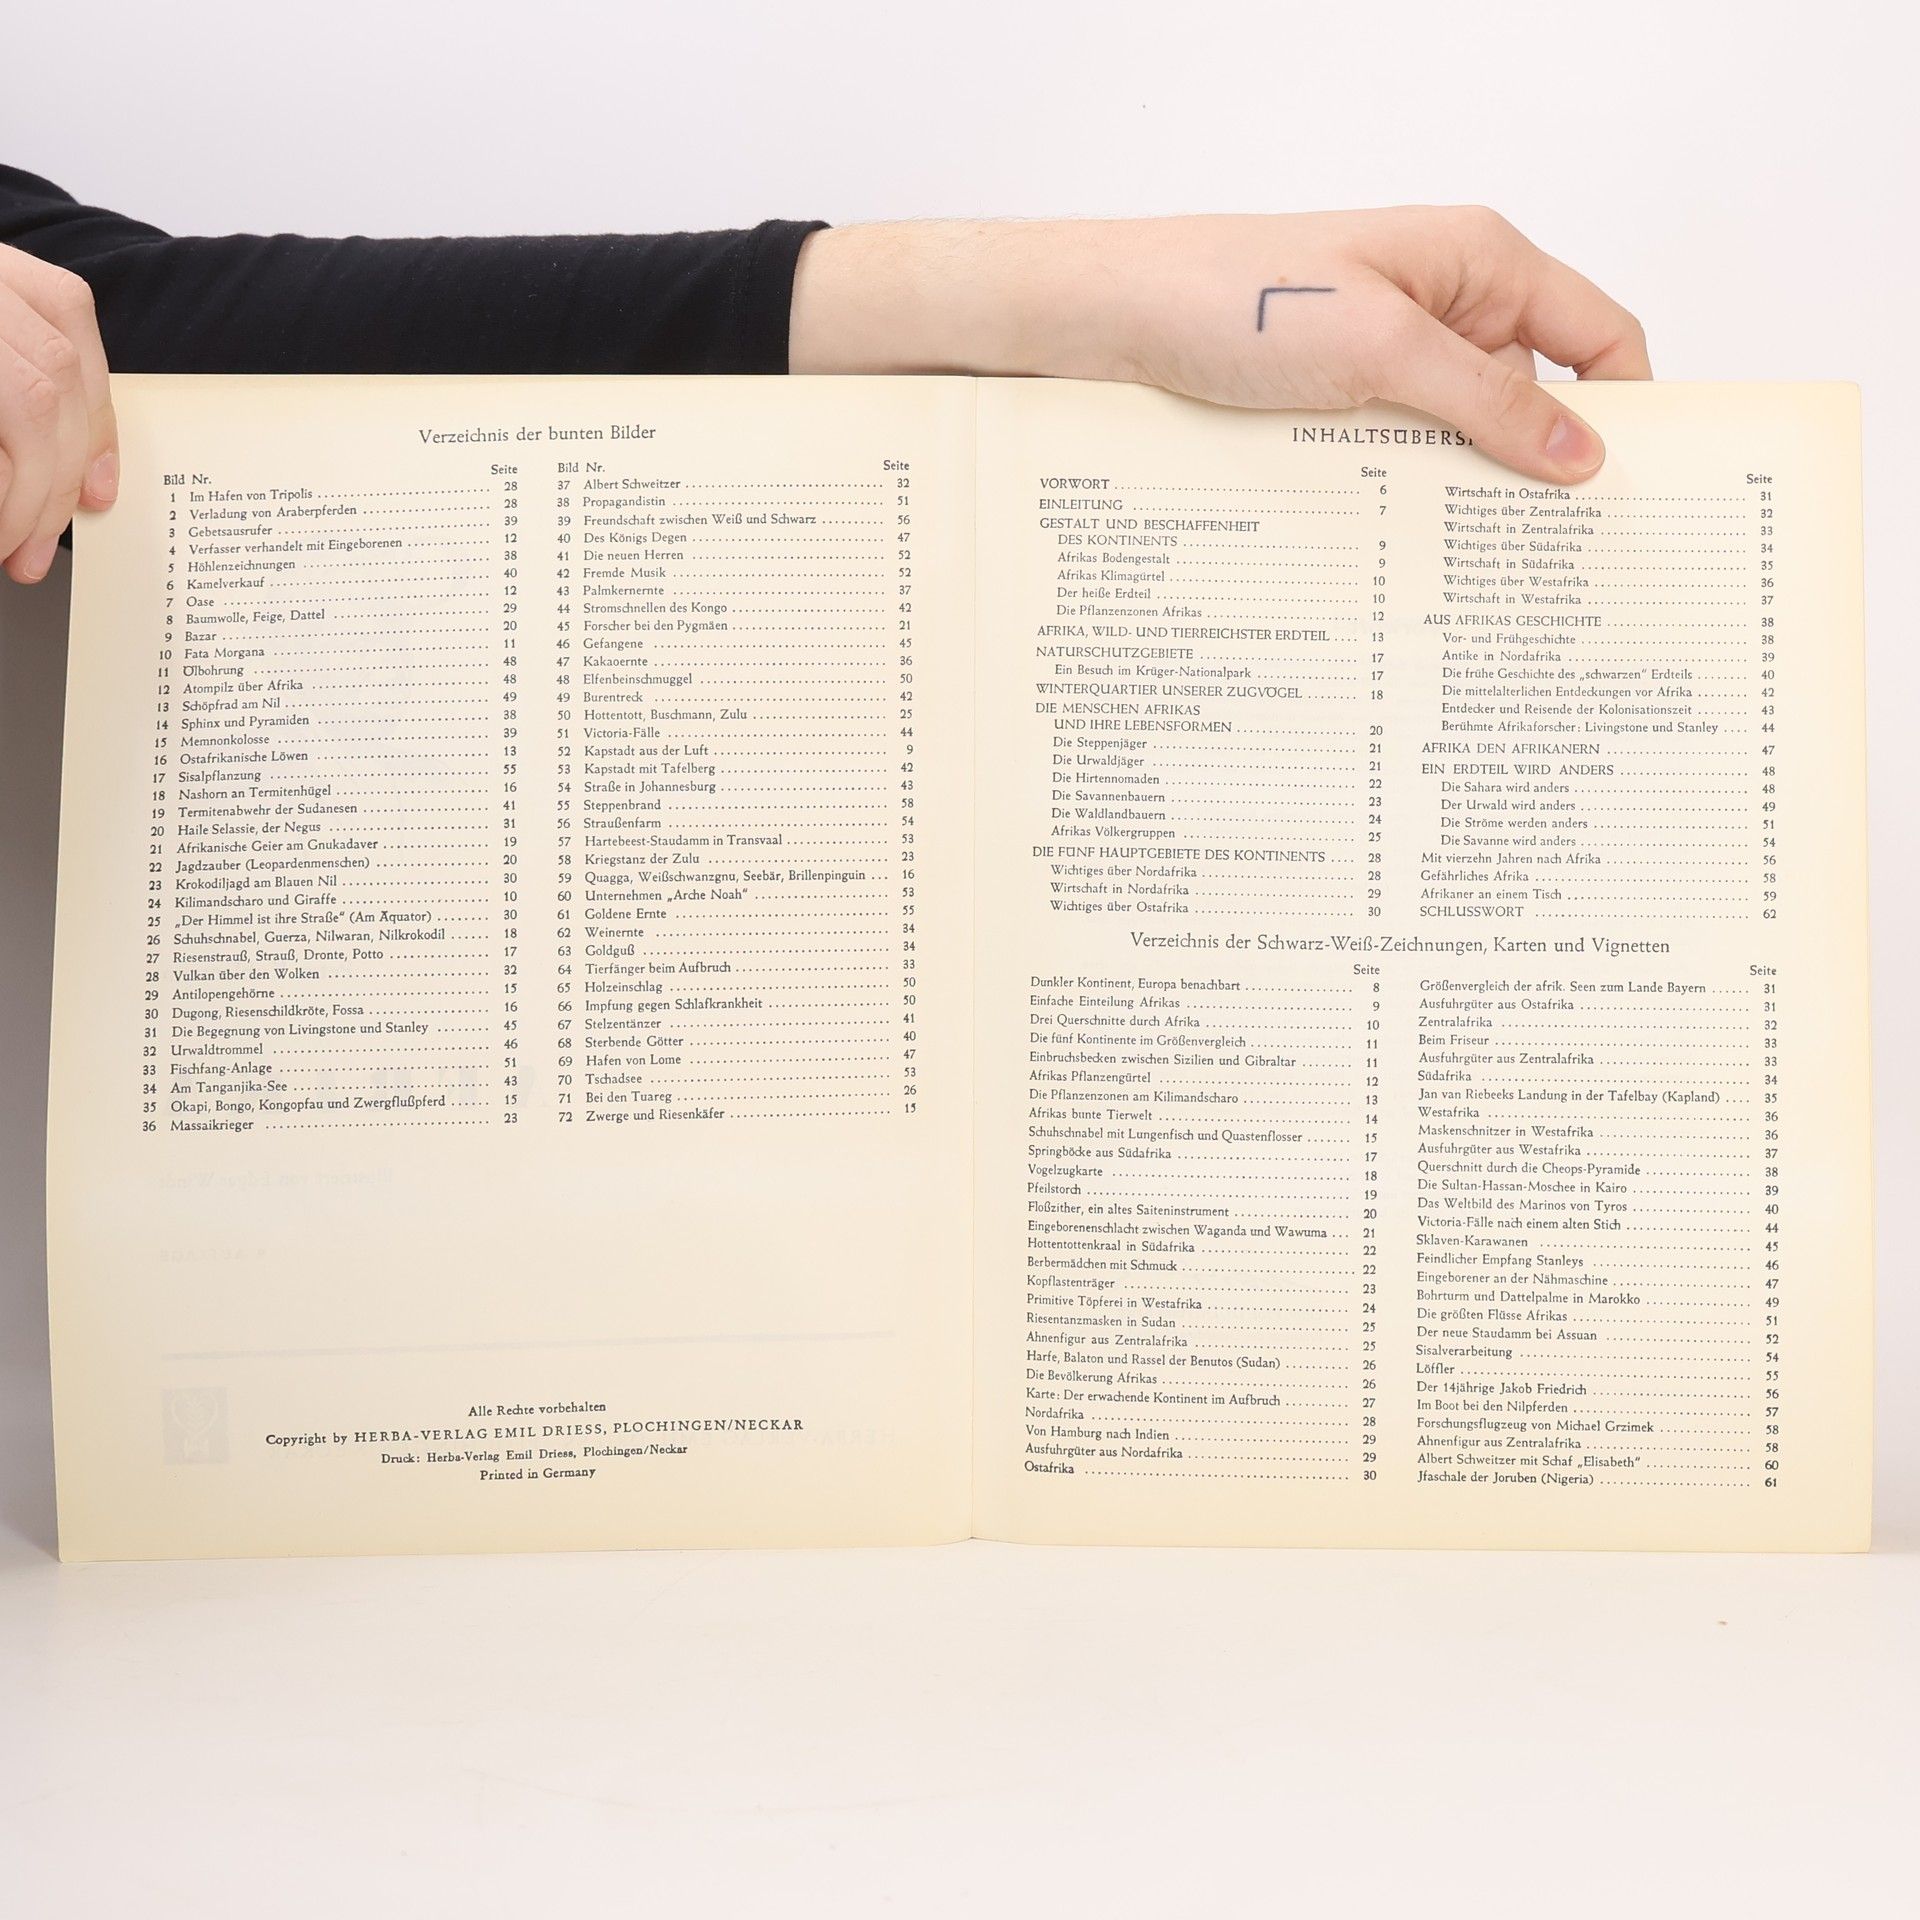 Verzeichnis der bunten Bilder
Bild Nr. Seite
1 Im Hafen von Tripolis 28
2 Verladung von Araberpferden 28
3 Gebetsausrufer 39
4 Verfasser verhandelt mit Eingeborenen 12
5 Höhlenzeichnungen 38
6 Kamelverkauf 40
7 Oase 12
8 Baumwolle, Feige, Dattel 29
9 Bazar 20
10 Fata Morgana 11
11 Ölbohrung 48
12 Atompilz über Afrika 48
13 Schöpfrad am Nil 49
14 Sphinx und Pyramiden 38
15 Memnonkolosse 39
16 Ostafrikanische Löwen 13
17 Sisalpflanzung 55
18 Nashorn an Termitenhügel 16
19 Termitenabwehr der Sudanesen 41
20 Haile Selassie, der Negus 31
21 Afrikanische Geier am Gnukadaver 19
22 Jagdzauber (Leopardenmenschen) 20
23 Krokodiljagd am Blauen Nil 30
24 Kilimandscharo und Giraffe 10
25 „Der Himmel ist ihre Straße“ (Am Äquator) 30
26 Schuhschnabel, Guerza, Nilwaran, Nilkrokodil 18
27 Riesenstrauß, Strauß, Dronte, Potto 17
28 Vulkan über den Wolken 32
29 Antilopengehörne 15
30 Dugong, Riesenschildkröte, Fossa 16
31 Die Begegnung von Livingstone und Stanley 45
32 Urwaldtrommel 46
33 Fischfang-Anlage 51
34 Am Tanganjika-See 43
35 Okapi, Bongo, Kongopfau und Zwergflußpferd 15
36 Massaikrieger 23
Bild Nr. Seite
37 Albert Schweitzer 32
38 Propagandistin 51
39 Freundschaft zwischen Weiß und Schwarz 56
40 Des Königs Degen 47
41 Die neuen Herren 52
42 Fremde Musik 52
43 Palmkernernte 37
44 Stromschnellen des Kongo 42
45 Forscher bei den Pygmäen 21
46 Gefangene 45
47 Kakaoernte 36
48 Elfenbeinschmuggel 50
49 Burentreck 42
50 Hottentott, Buschmann, Zulu 25
51 Victoria-Fälle 44
52 Kapstadt aus der Luft 9
53 Kapstadt mit Tafelberg 42
54 Straße in Johannesburg 43
55 Steppenbrand 58
56 Straußenfarm 54
57 Hartebeest-Staudamm in Transvaal 53
58 Kriegstanz der Zulu 23
59 Quagga, Weißschwanzgnu, Seebär, Brillenpinguin 16
60 Unternehmen „Arche Noah“ 53
61 Goldene Ernte 55
62 Weinernte 34
63 Goldguß 34
64 Tierfänger beim Aufbruch 33
65 Holzeinschlag 50
66 Impfung gegen Schlafkrankheit 50
67 Stelzentänzer 41
68 Sterbende Götter 40
69 Hafen von Lome 47
70 Tschadsee 53
71 Bei den Tuareg 26
72 Zwerge und Riesenkäfer 15
Alle Rechte vorbehalten
Copyright by HERBA-VERLAG EMIL DRIESS, PLOCHINGEN/NECKAR
Druck: Herba-Verlag Emil Driess, Plochingen/Neckar
Printed in Germany
INHALTSÜBERS
Seite
VORWORT 6
EINLEITUNG 7
GESTALT UND BESCHAFFENHEIT
DES KONTINENTS 9
Afrikas Bodengestalt 9
Afrikas Klimagürtel 10
Der heiße Erdteil 10
Die Pflanzenzonen Afrikas 12
AFRIKA, WILD- UND TIERREICHSTER ERDTEIL 13
NATURSCHUTZGEBIETE 17
Ein Besuch im Krüger-Nationalpark 17
WINTERQUARTIER UNSERER ZUGVÖGEL 18
DIE MENSCHEN AFRIKAS
UND IHRE LEBENSFORMEN 20
Die Steppenjäger 21
Die Urwaldjäger 21
Die Hirtennomaden 22
Die Savannenbauern 23
Die Waldlandbauern 24
Afrikas Völkergruppen 25
DIE FÜNF HAUPTGEBIETE DES KONTINENTS 28
Wichtiges über Nordafrika 28
Wirtschaft in Nordafrika 29
Wichtiges über Ostafrika 30
Seite
Wirtschaft in Ostafrika 31
Wichtiges über Zentralafrika 32
Wirtschaft in Zentralafrika 33
Wichtiges über Südafrika 34
Wirtschaft in Südafrika 35
Wichtiges über Westafrika 36
Wirtschaft in Westafrika 37
AUS AFRIKAS GESCHICHTE 38
Vor- und Frühgeschichte 38
Antike in Nordafrika 39
Die frühe Geschichte des „schwarzen“ Erdteils 40
Die mittelalterlichen Entdeckungen vor Afrika 42
Entdecker und Reisende der Kolonisationszeit 43
Berühmte Afrikaforscher: Livingstone und Stanley 44
AFRIKA DEN AFRIKANERN 47
EIN ERDTEIL WIRD ANDERS 48
Die Sahara wird anders 48
Der Urwald wird anders 49
Die Ströme werden anders 51
Die Savanne wird anders 54
Mit vierzehn Jahren nach Afrika 56
Gefährliches Afrika 58
Afrikaner an einem Tisch 59
SCHLUSSWORT 62
Verzeichnis der Schwarz-Weiß-Zeichnungen, Karten und Vignetten
Seite
Dunkler Kontinent, Europa benachbart 8
Einfache Einteilung Afrikas 9
Drei Querschnitte durch Afrika 10
Die fünf Kontinente im Größenvergleich 11
Einbruchsbecken zwischen Sizilien und Gibraltar 11
Afrikas Pflanzengürtel 12
Die Pflanzenzonen am Kilimandscharo 13
Afrikas bunte Tierwelt 14
Schuhschnabel mit Lungenfisch und Quastenflosser 15
Springböcke aus Südafrika 17
Vogelzugkarte 18
Pfeilstorch 19
Floßzither, ein altes Saiteninstrument 20
Eingeborenenschlacht zwischen Waganda und Wawuma 21
Hottentottenkraal in Südafrika 22
Berbermädchen mit Schmuck 22
Kopflastenträger 23
Primitive Töpferei in Westafrika 24
Riesentanzmasken in Sudan 25
Ahnenfigur aus Zentralafrika 25
Harfe, Balaton und Rassel der Benutos (Sudan) 26
Die Bevölkerung Afrikas 26
Karte: Der erwachende Kontinent im Aufbruch 27
Nordafrika 28
Von Hamburg nach Indien 29
Ausfuhrgüter aus Nordafrika 29
Ostafrika 30
Seite
Größenvergleich der afrik. Seen zum Lande Bayern 31
Ausfuhrgüter aus Ostafrika 31
Zentralafrika 32
Beim Friseur 33
Ausfuhrgüter aus Zentralafrika 33
Südafrika 34
Jan van Riebeeks Landung in der Tafelbay (Kapland) 35
Westafrika 36
Maskenschnitzer in Westafrika 36
Ausfuhrgüter aus Westafrika 37
Querschnitt durch die Cheops-Pyramide 38
Die Sultan-Hassan-Moschee in Kairo 39
Das Weltbild des Marinos von Tyros 40
Victoria-Fälle nach einem alten Stich 44
Sklaven-Karawanen 45
Feindlicher Empfang Stanleys 46
Eingeborener an der Nähmaschine 47
Bohrturm und Dattelpalme in Marokko 49
Die größten Flüsse Afrikas 51
Der neue Staudamm bei Assuan 52
Sisalverarbeitung 54
Löffler 55
Der 14jährige Jakob Friedrich 56
Im Boot bei den Nilpferden 57
Forschungsflugzeug von Michael Grzimek 58
Ahnenfigur aus Zentralafrika 58
Albert Schweitzer mit Schaf „Elisabeth“ 60
Jfaschale der Joruben (Nigeria) 61